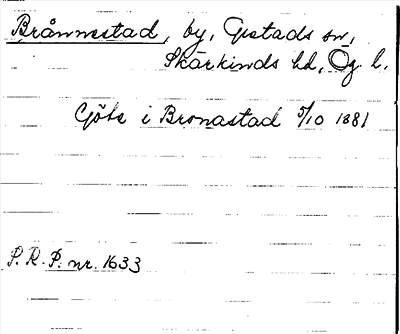 Brånnestad, by, Gistads sn,
Skärkinds hd, Ög. l.
Göts i Bronastad 5/10 1381
S.R.P. nr. 1633